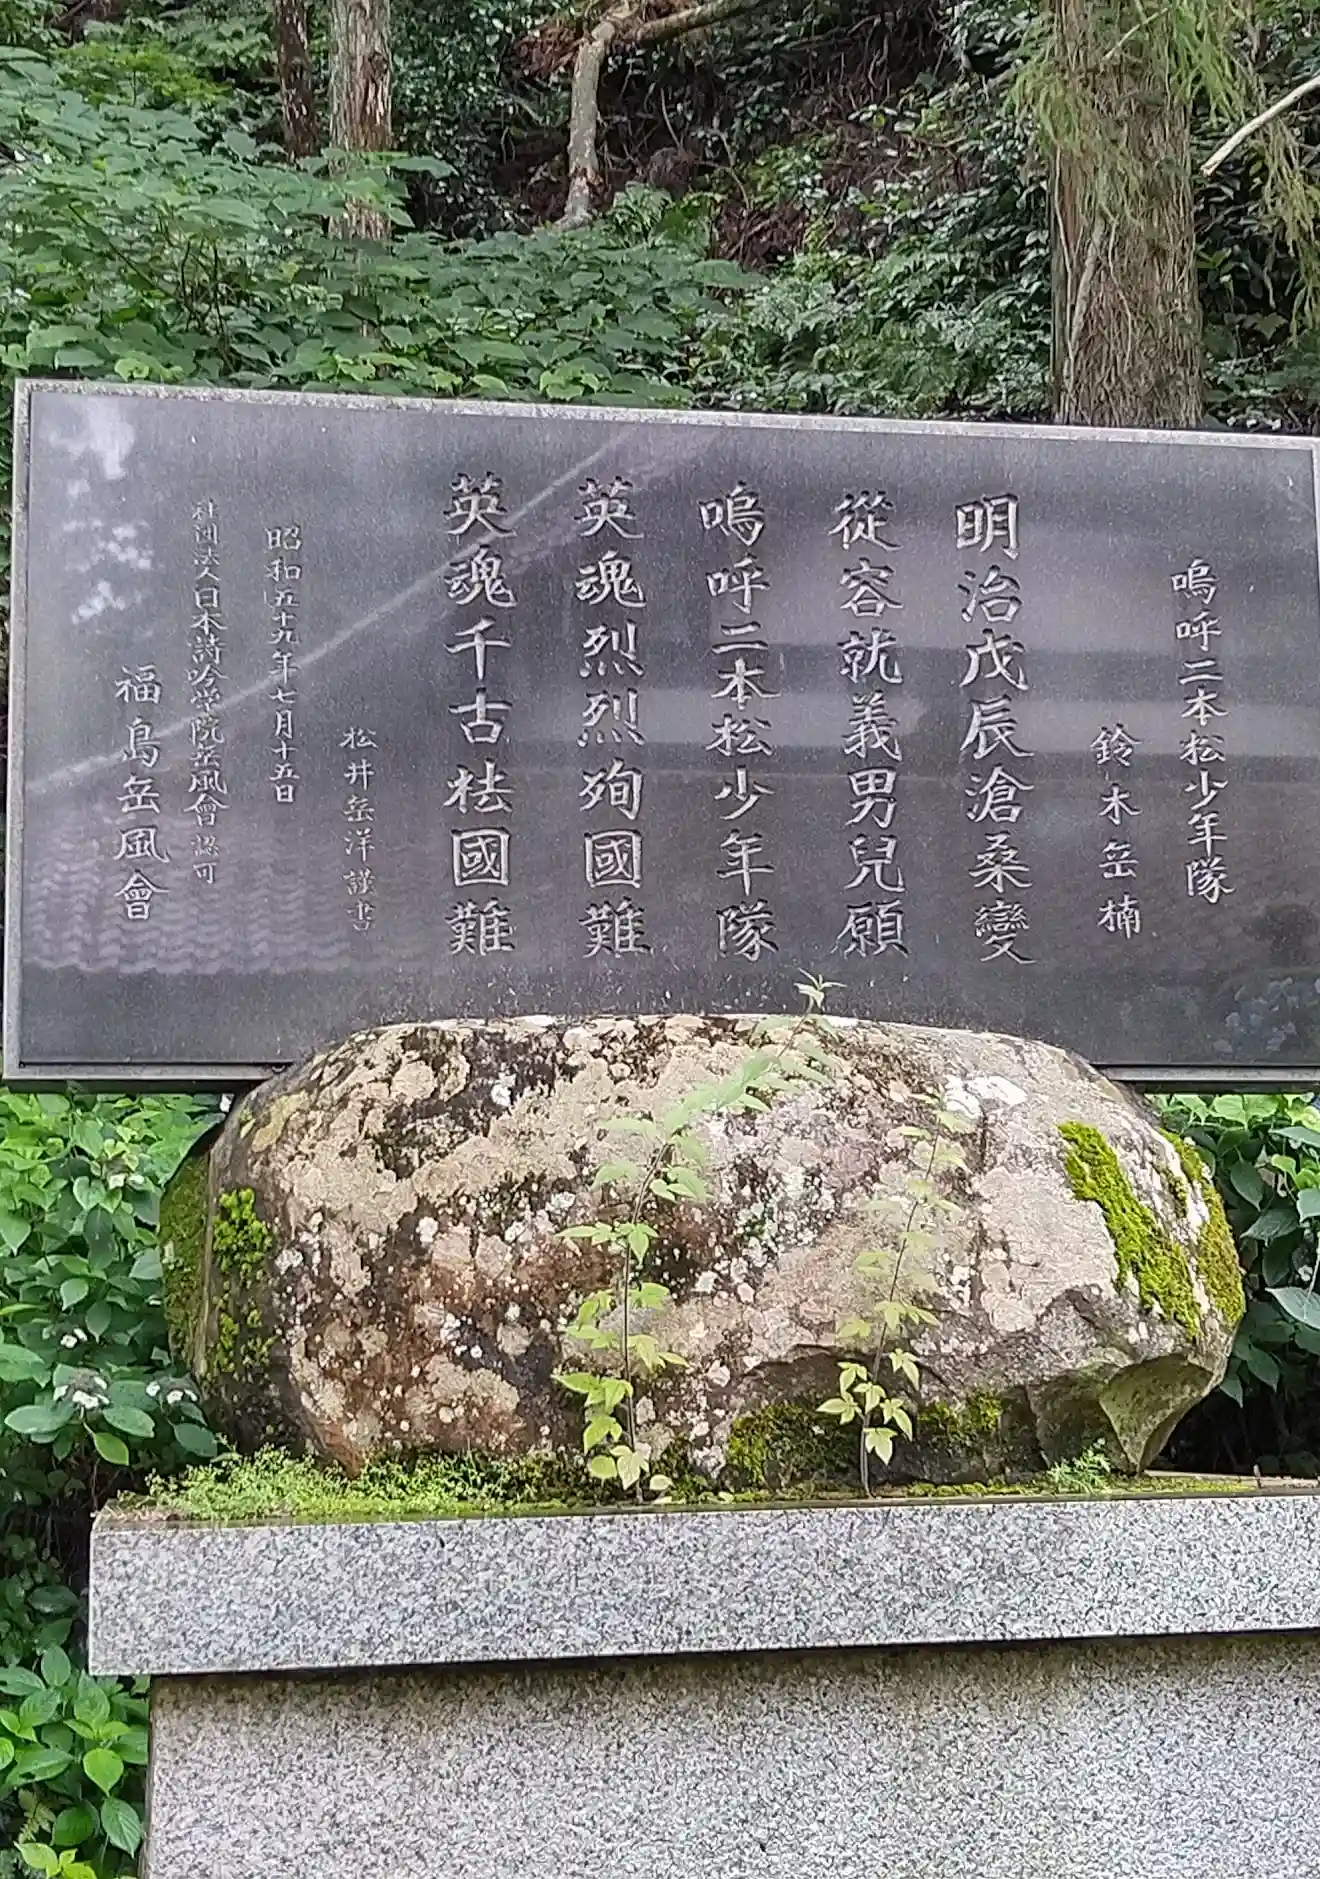 嗚呼二本松少年隊
鈴木岳楠
明治戊辰滄桑變
從容就義男兒願
嗚呼二本松少年隊
英魂烈烈殉國難
英魂千古祛國難
松井岳洋謹書
昭和五十九年七月十五日
社団法人日本詩吟学院岳風會認可
福島岳風會